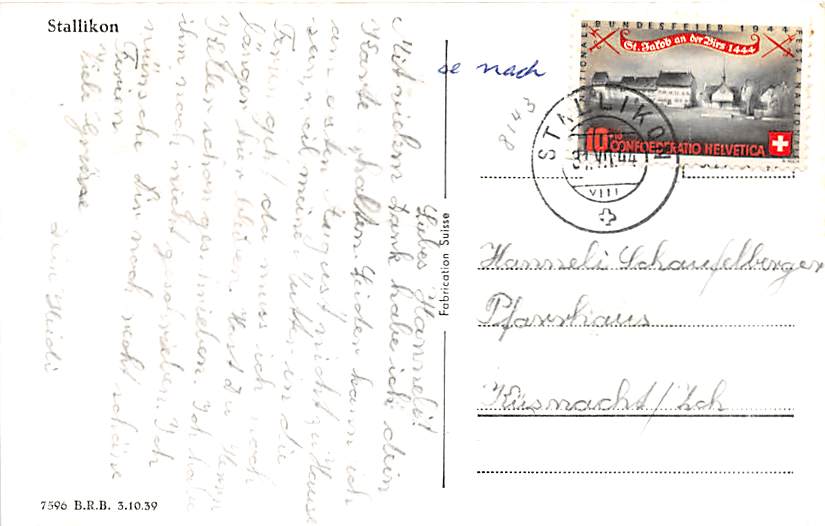 Stallikon
Liebes Hanneli!
Mit vielem Dank habe ich dein
Karte erhalten. Leider kann ich
am ersten August nicht zu Hause
sein, weil meine Mutter in die
Ferien geht da muss ich noch
länger hier bleiben. Hast du Herrn
Keller schon geschrieben. Ich habe
ihm noch nicht geschrieben. Ich
wünsche dir noch recht schöne
Ferien
Viele Grüsse
Dein Heidi
7596 B.R.B. 3.10.39
Fabrication Suisse
se nach
8143
NATIONALE BUNDESFEIER 1944 FESTA NAZIONALE
St. Jakob an der Birs 1444
10
CONFOEDERATIO HELVETICA
STALLIKON
31.VII.44
VIII
Hanneli Schaufelberger
Pfarrhaus
Küsnacht/Zch